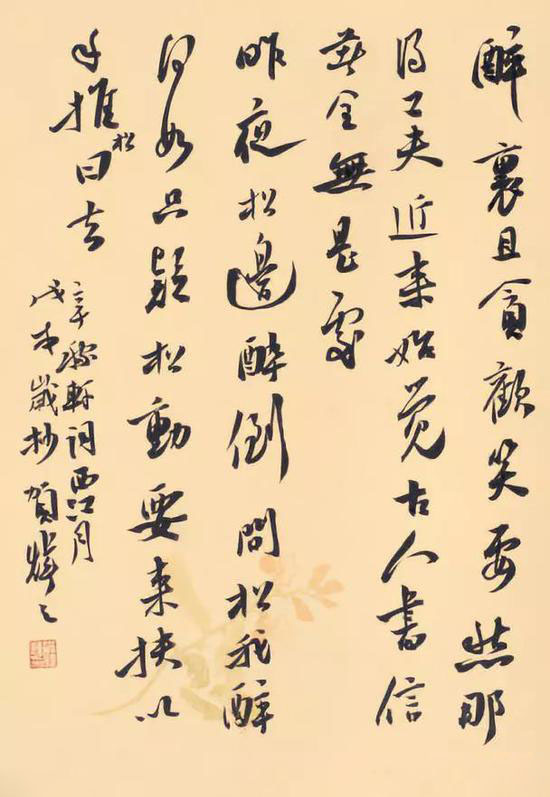 醉裏且貪歡笑要愁那
得工夫近来始觉古人書信
著全無是處
昨夜松邊醉倒問松我醉
何如只疑松動要来扶以
手推松曰去
辛稼軒词西江月
戊歲抄賀